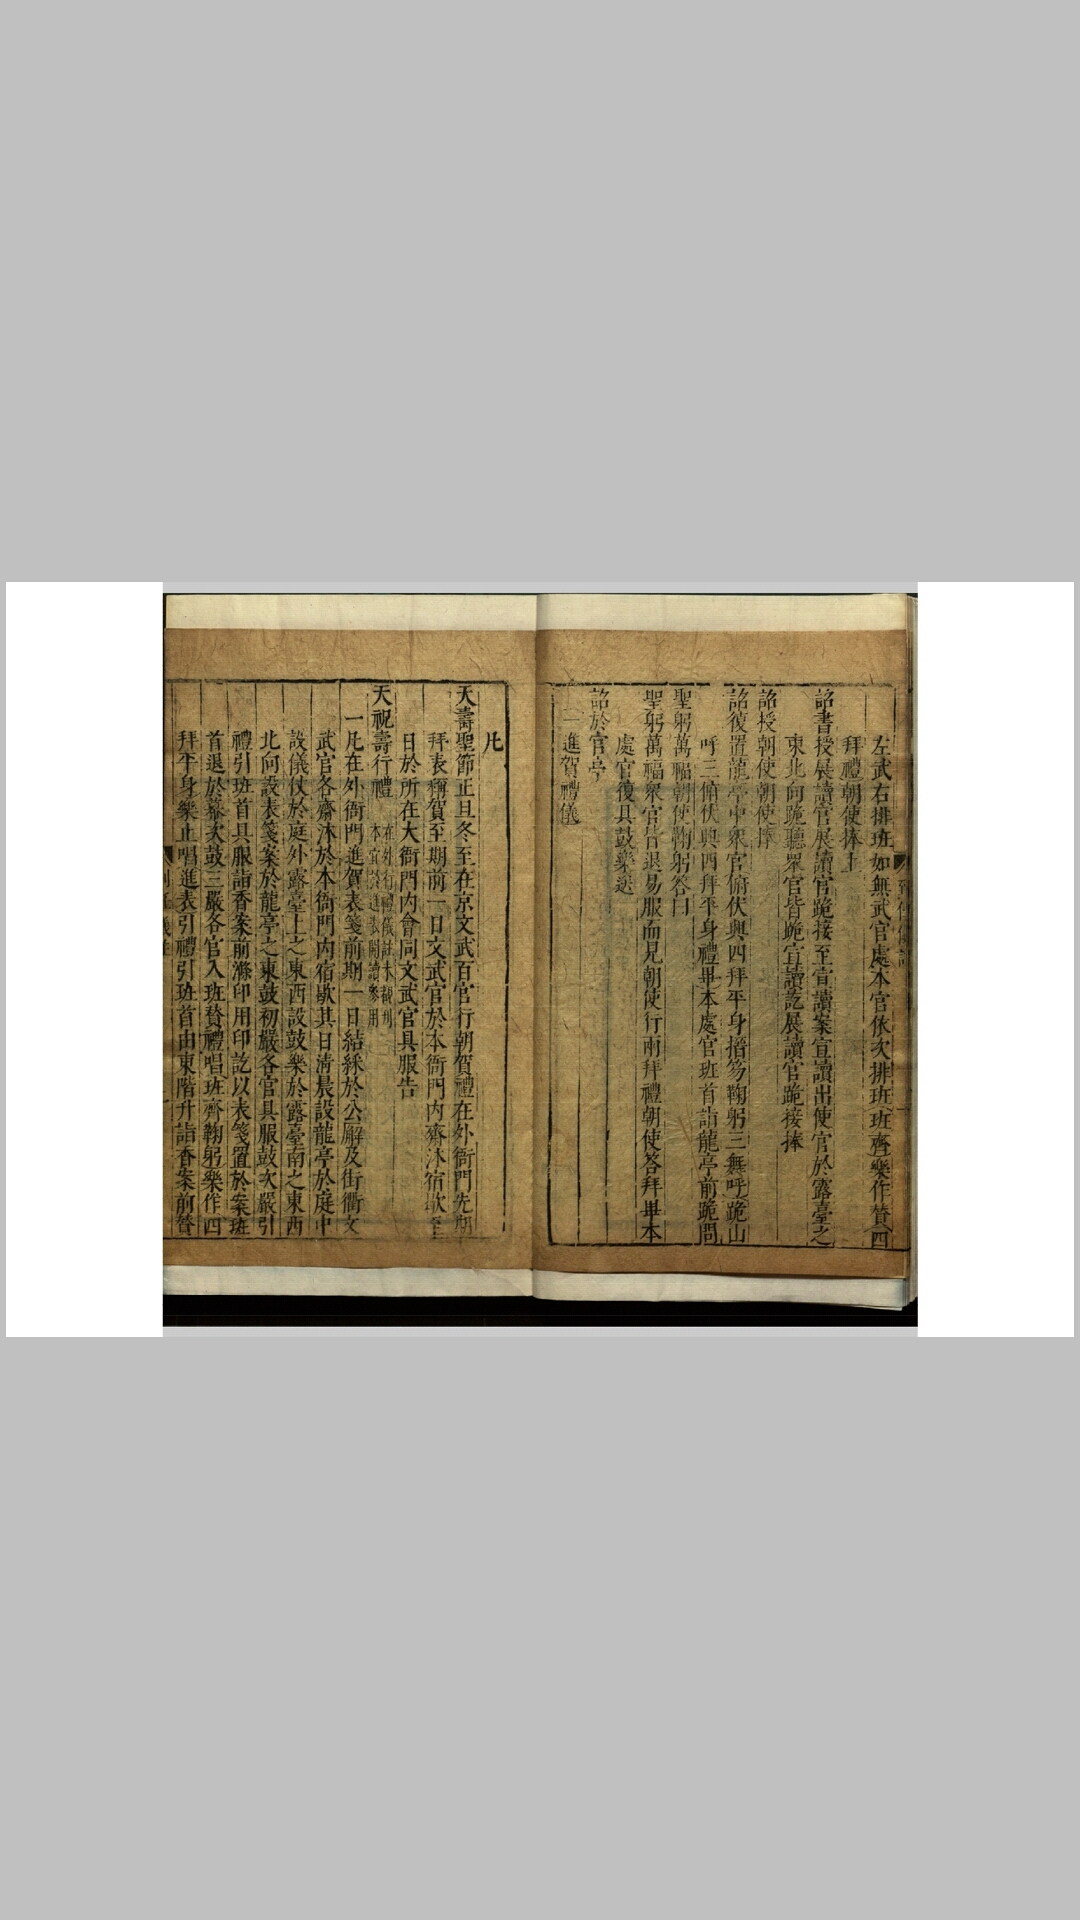 左武右排班如無武官處本官依次排班班齊樂作贊四
拜禮朝使捧上
詔書授展讀官展讀官跪接至宣讀案宣讀出使官於露臺之
東北向跪聽眾官皆跪宣讀訖展讀官跪接捧
詔授朝使朝使捧
詔復置龍亭中眾官俯伏興四拜平身搢笏鞠躬三舞呼跪山
呼三俯伏興四拜平身禮畢本處官班首詣龍亭前跪問
聖躬萬福朝使鞠躬答曰
聖躬萬福眾官皆退易服而見朝使行兩拜禮朝使答拜畢本
處官復具鼓樂送
詔於官亭
一進賀禮儀
凡
天壽聖節正旦冬至在京文武百官行朝賀禮在外衙門先期
拜表稱賀至期前一日文武官於本衙門內齋沐宿歇至
日於所在大衙門內會同文武官具服告
天祝壽行禮
在外行禮儀註未載刊
本宜於進表開讀參用
一凡在外衙門進賀表箋前期一日結綵於公廨及街衢文
武官各齋沐於本衙門內宿歇其日清晨設龍亭於庭中
設儀仗於庭外露臺上之東西設鼓樂於露臺南之東西
北向設表箋案於龍亭之東鼓初嚴各官具服鼓次嚴引
禮引班首具服詣香案前滌印用印訖以表箋置於案班
首退於幕次鼓三嚴各官入班贊禮唱班齊鞠躬樂作四
拜平身樂止唱進表引禮引班首由東階升詣香案前贊